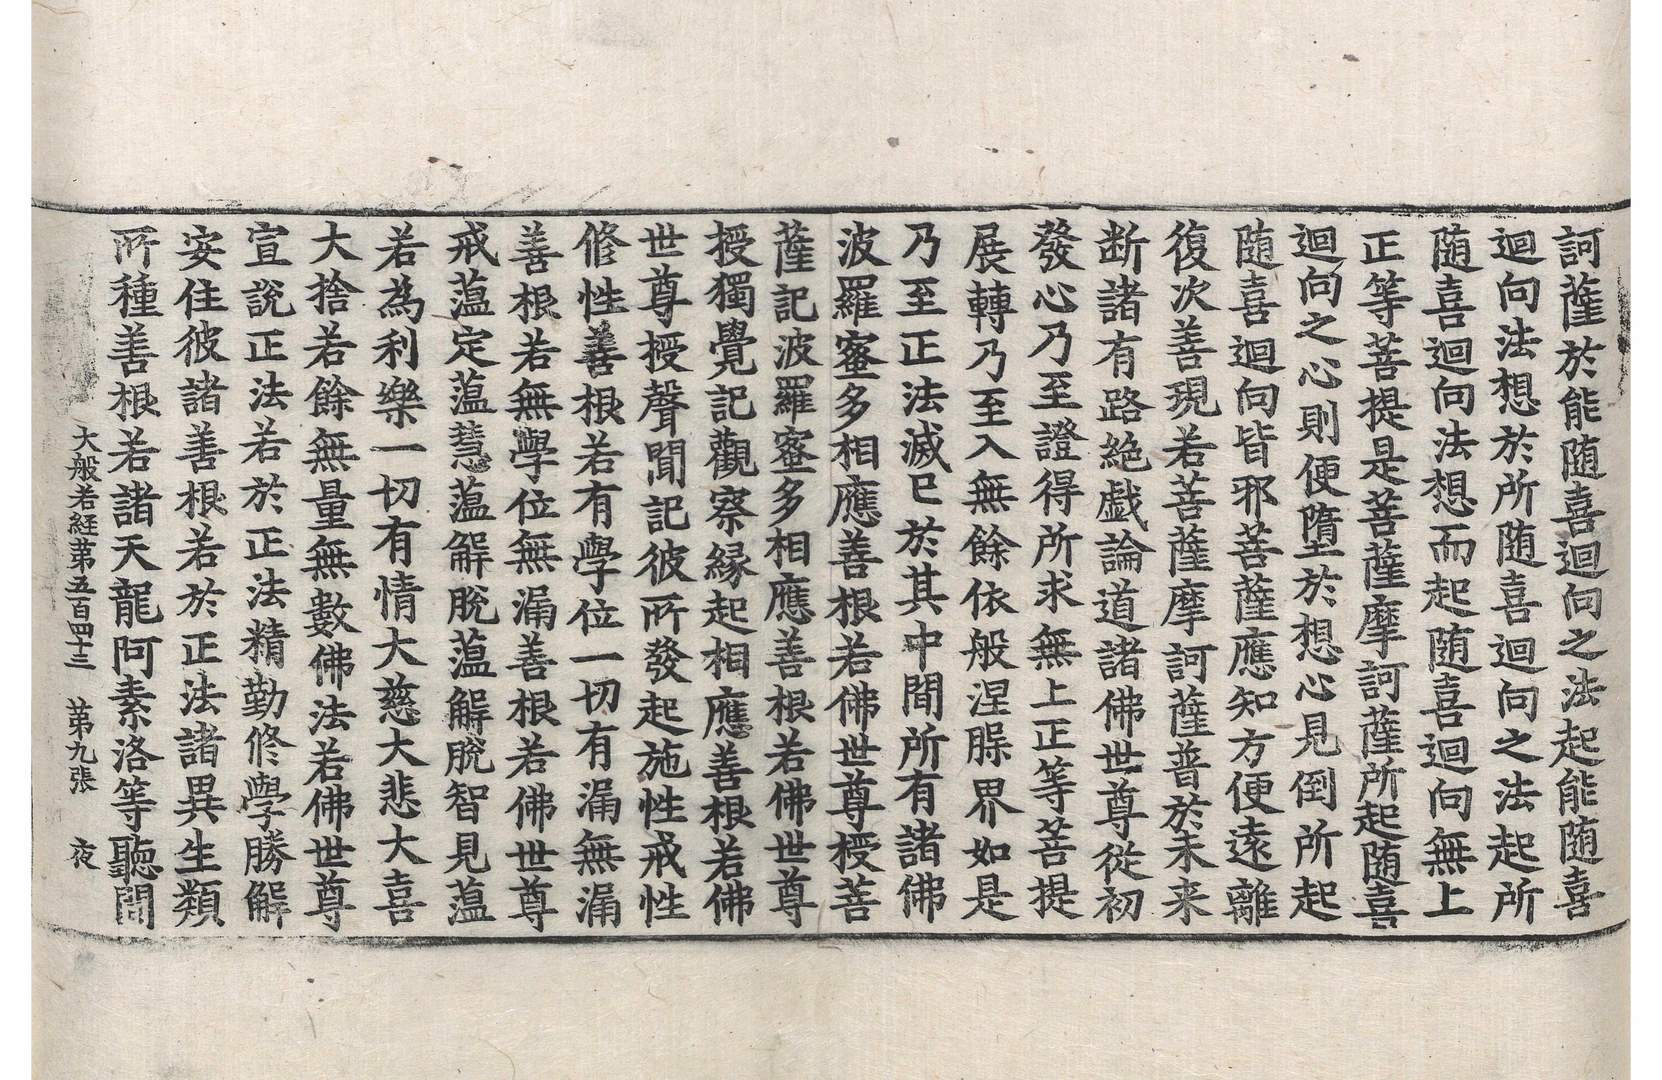 訶薩於能随喜迴向之法起能随喜
迴向法想於所随喜迴向之法起所
随喜迴向法想而起随喜迴向無上
正等菩提是菩薩摩訶薩所起随喜
迴向之心則便墮於想心見倒所起
随喜迴向皆邪菩薩應知方便遠離
復次善現若菩薩摩訶薩普於未来
断諸有路絶戯論道諸佛世尊從初
發心乃至證得所求無上正等菩提
展轉乃至入無餘依般涅槃界如是
乃至正法滅已於其中間所有諸佛
波羅蜜多相應善根若佛世尊授菩
薩記波羅蜜多相應善根若佛世尊
授獨覺記觀察縁起相應善根若佛
世尊授聲聞記彼所發起施性戒性
修性善根若有學位一切有漏無漏
善根若無學位無漏善根若佛世尊
戒蕰定蕰慧蕰解脫蕰解脫智見蕰
若為利樂一切有情大慈大悲大喜
大捨若餘無量無數佛法若佛世尊
宣説正法若於正法精勤修學勝解
安住彼諸善根若於正法諸異生類
所種善根若諸天龍阿素洛等聽聞
大般若経第五百四十三　第九張　夜